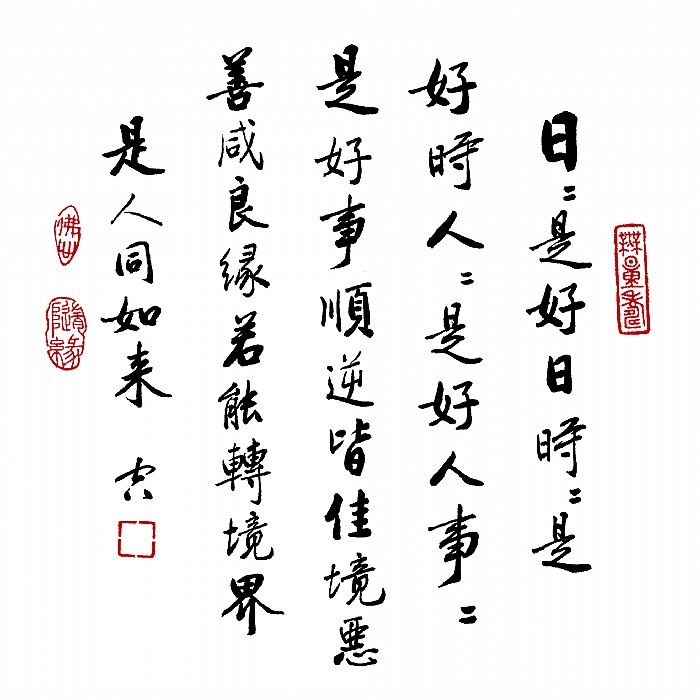 無量壽
日〻是好日時〻是
好時人〻是好人事〻
是好事順逆皆佳境惡
善咸良緣若能轉境界
是人同如来
隨緣